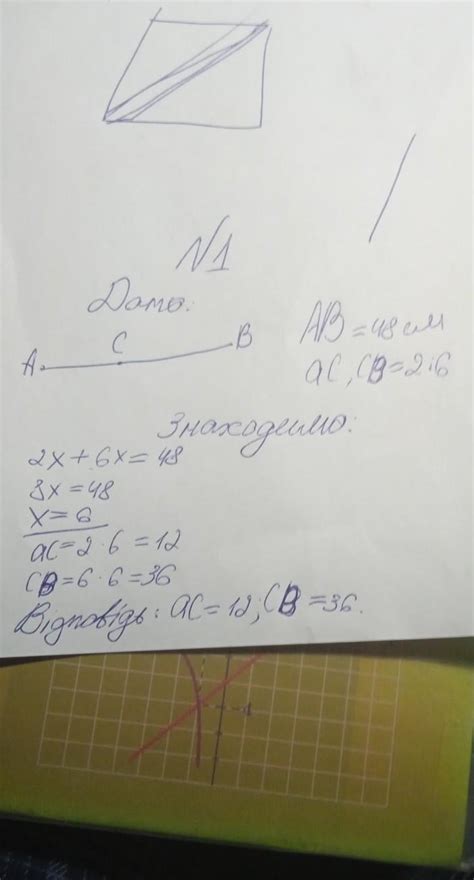 N1
Дано:
A C B
AB = 48 см
AC, CB = 2:6
Знаходимо:
2x + 6x = 48
8x = 48
x = 6
AC = 2 · 6 = 12
CB = 6 · 6 = 36
Відповідь: AC = 12; CB = 36.